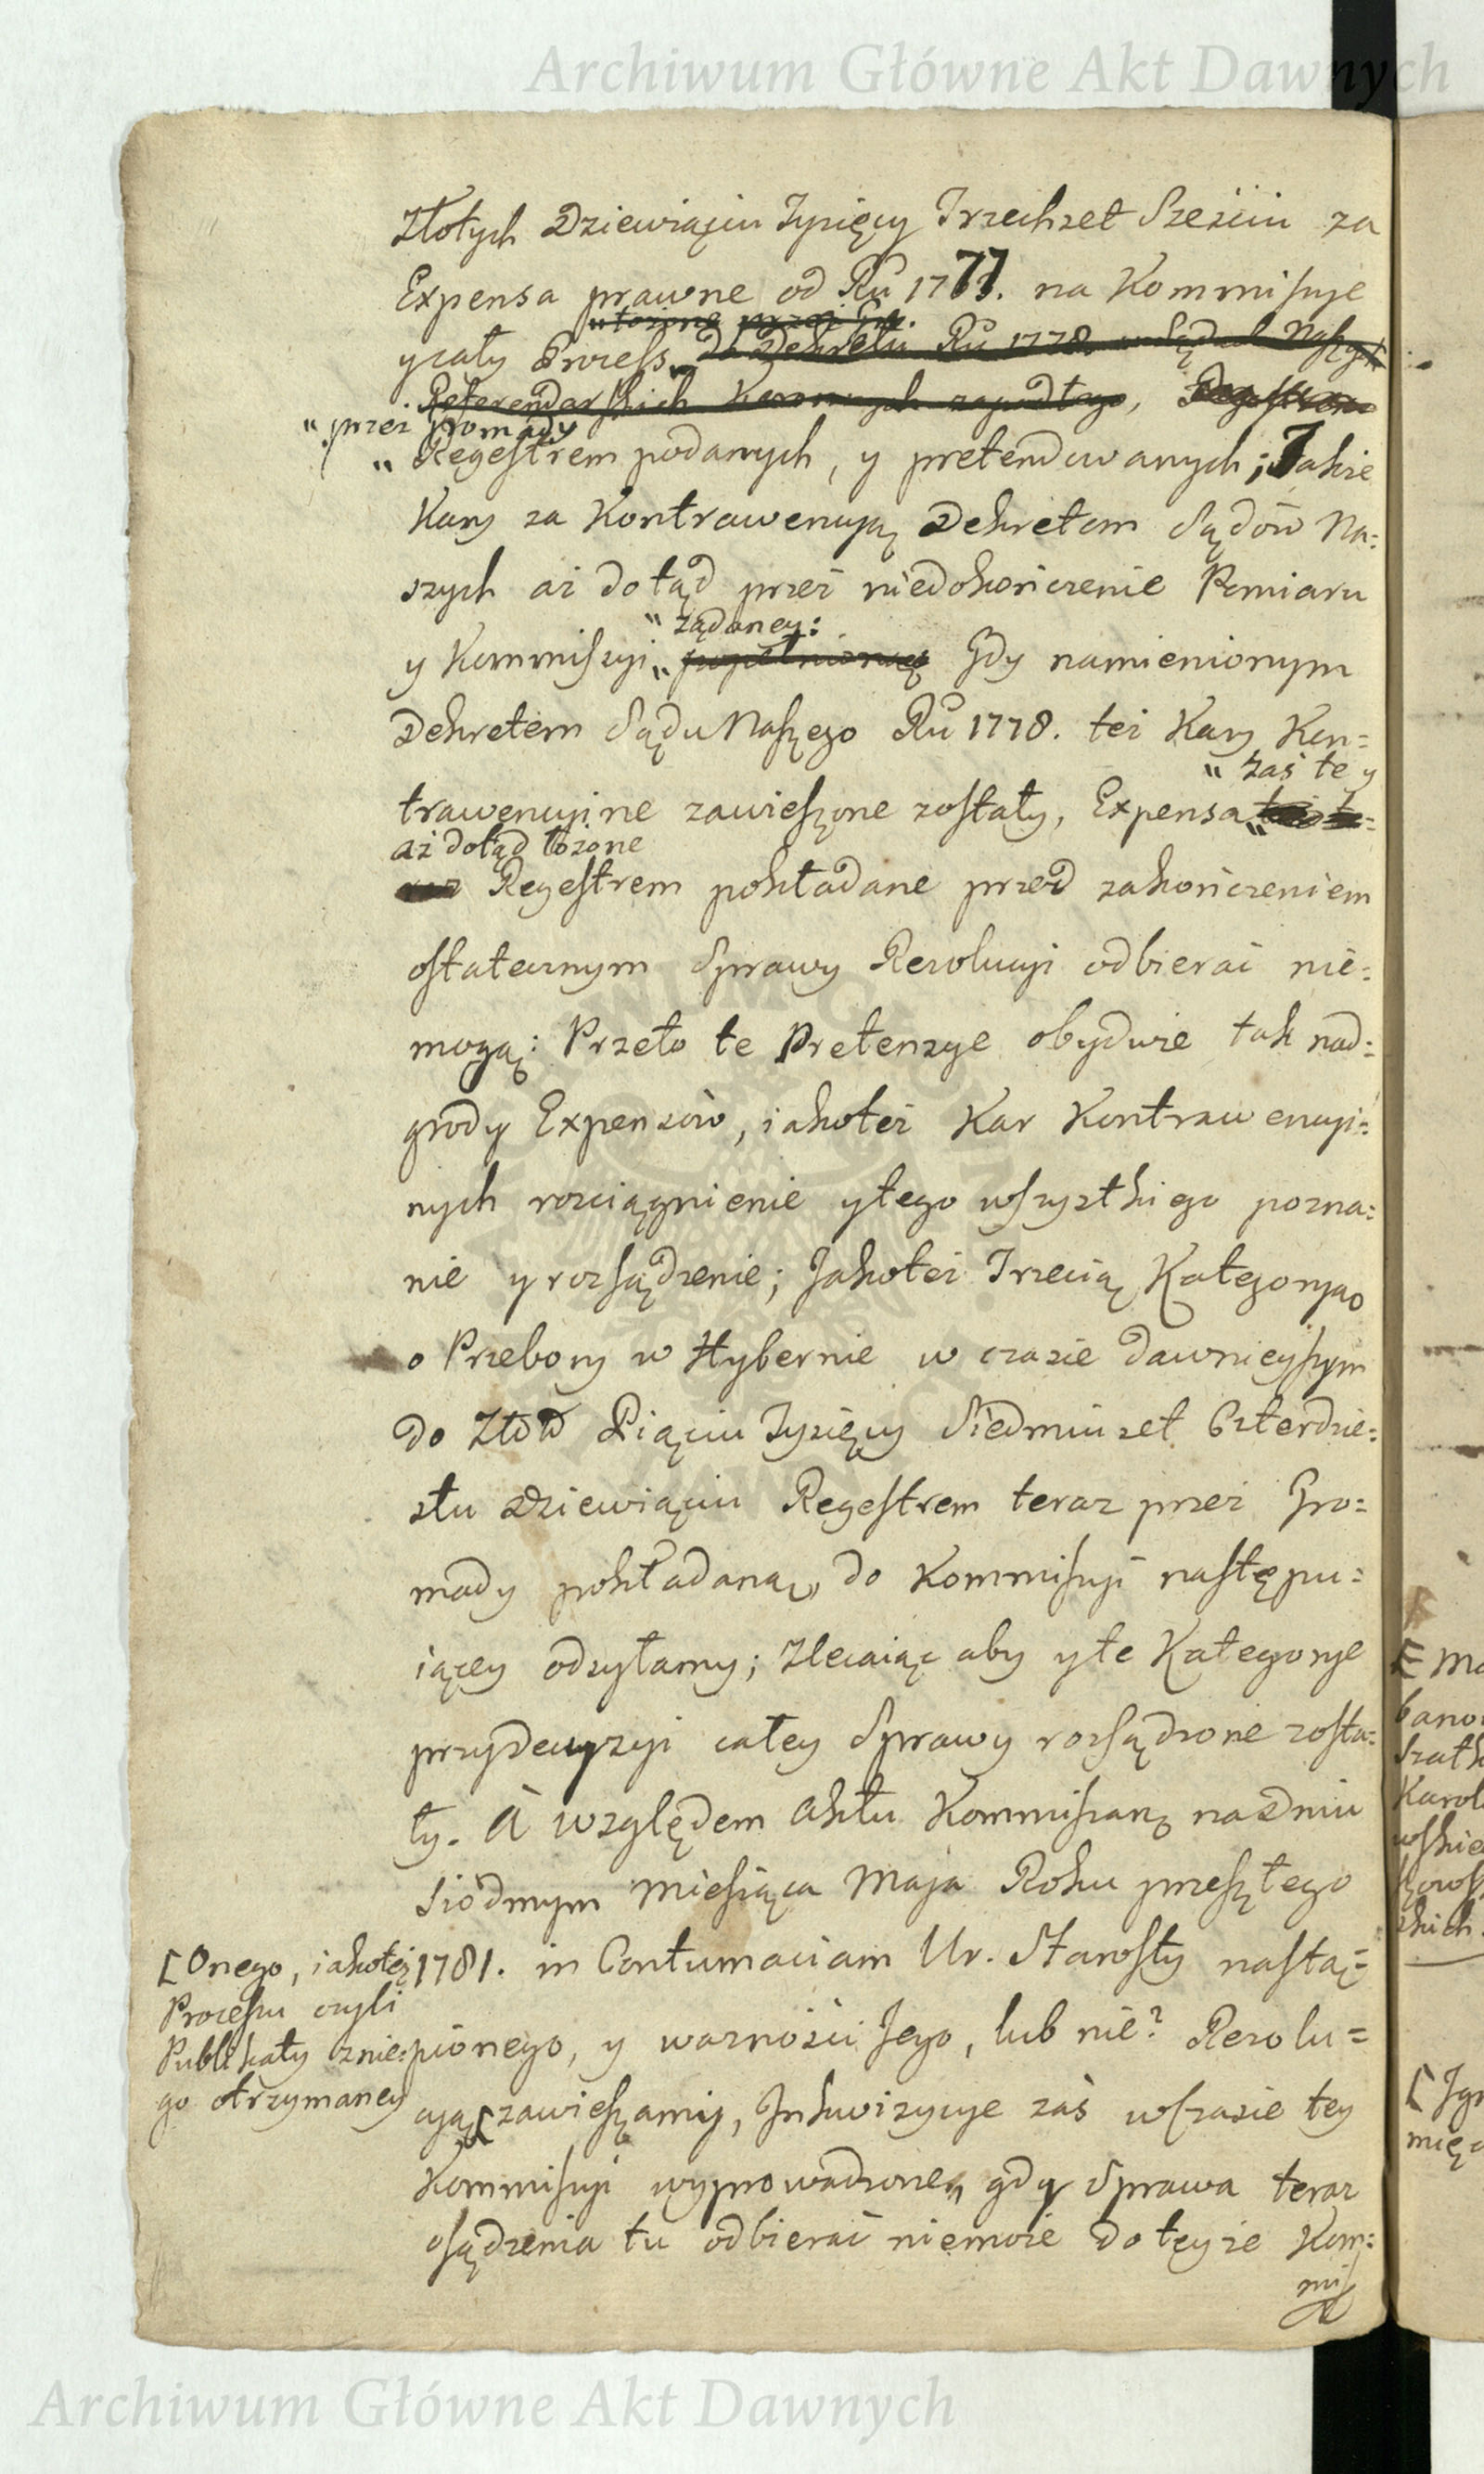 Archiwum Główne Akt Dawnych
Złotych Dziewiąciu Tysięcy Trzechset Sześciu za
Expensa prawne od Ru 1777. na Kommissye
" łożone przez Gro.
y cały Process " do Dekretu Ru 1778. w Sądach Naszych
Referendarskich Koronnych zapadłego, Regestrem
" przez Gromady
" Regestrem podanych, y pretendowanych; Jakie
Kary za Kontrawencyą Dekretom Sądów Na=
szych aż dotąd przez niedokończenie Pomiaru
" żądaney:
y Kommissyi " popełnioney Gdy namienionym
Dekretem Sądu Naszego Ru 1778. też Kary Kon=
" zaś te y
trawencyine zawieszone zostały, Expensa "
aż dotąd łożone
Regestrem pokładane przed zakończeniem
ostatecznym Sprawy Rezolucyi odbierać nie=
mogą: Przeto te Pretensye obydwie tak nad=
grody Expensów, iakoteż Kar Kontrawencyi=
nych rozciągnienie y tego wszystkiego pozna=
nie y rozsądzenie; Jakoteż Trzecią Kategoryą
o Przebory w Hybernie w czasie dawnieyszym
do Złotł Piąciu Tysięcy Siedmiuset Czterdzie=
stu Dziewiąciu Regestrem teraz przez Gro=
mady pokładaną, do Kommissyi następu=
iącey odsyłamy; Zlecaiąc aby y te Kategorye
przy decyzyi całey Sprawy rozsądzone zosta=
ły. A względem Aktu Kommissarz na Dniu
Siódmym Miesiąca Maja Roku przeszłego
1781. in Contumaciam Ur. Starosty nastą=
pionego, y ważności Jego, lub nie? Rezolu=
cyą [ zawieszamy, Inkwizycye zaś w czasie tey
Kommissyi wyprowadzone, gdy Sprawa teraz
osądzenia tu odbierać niemoże do teyże Kom=
mis
[ Onego, iakoteż
Processu czyli
Publikaty z nie=
go otrzymaney
[ Ma
bano
szath
Karol
wskie
skich.
[ Ign
międ
Archiwum Główne Akt Dawnych